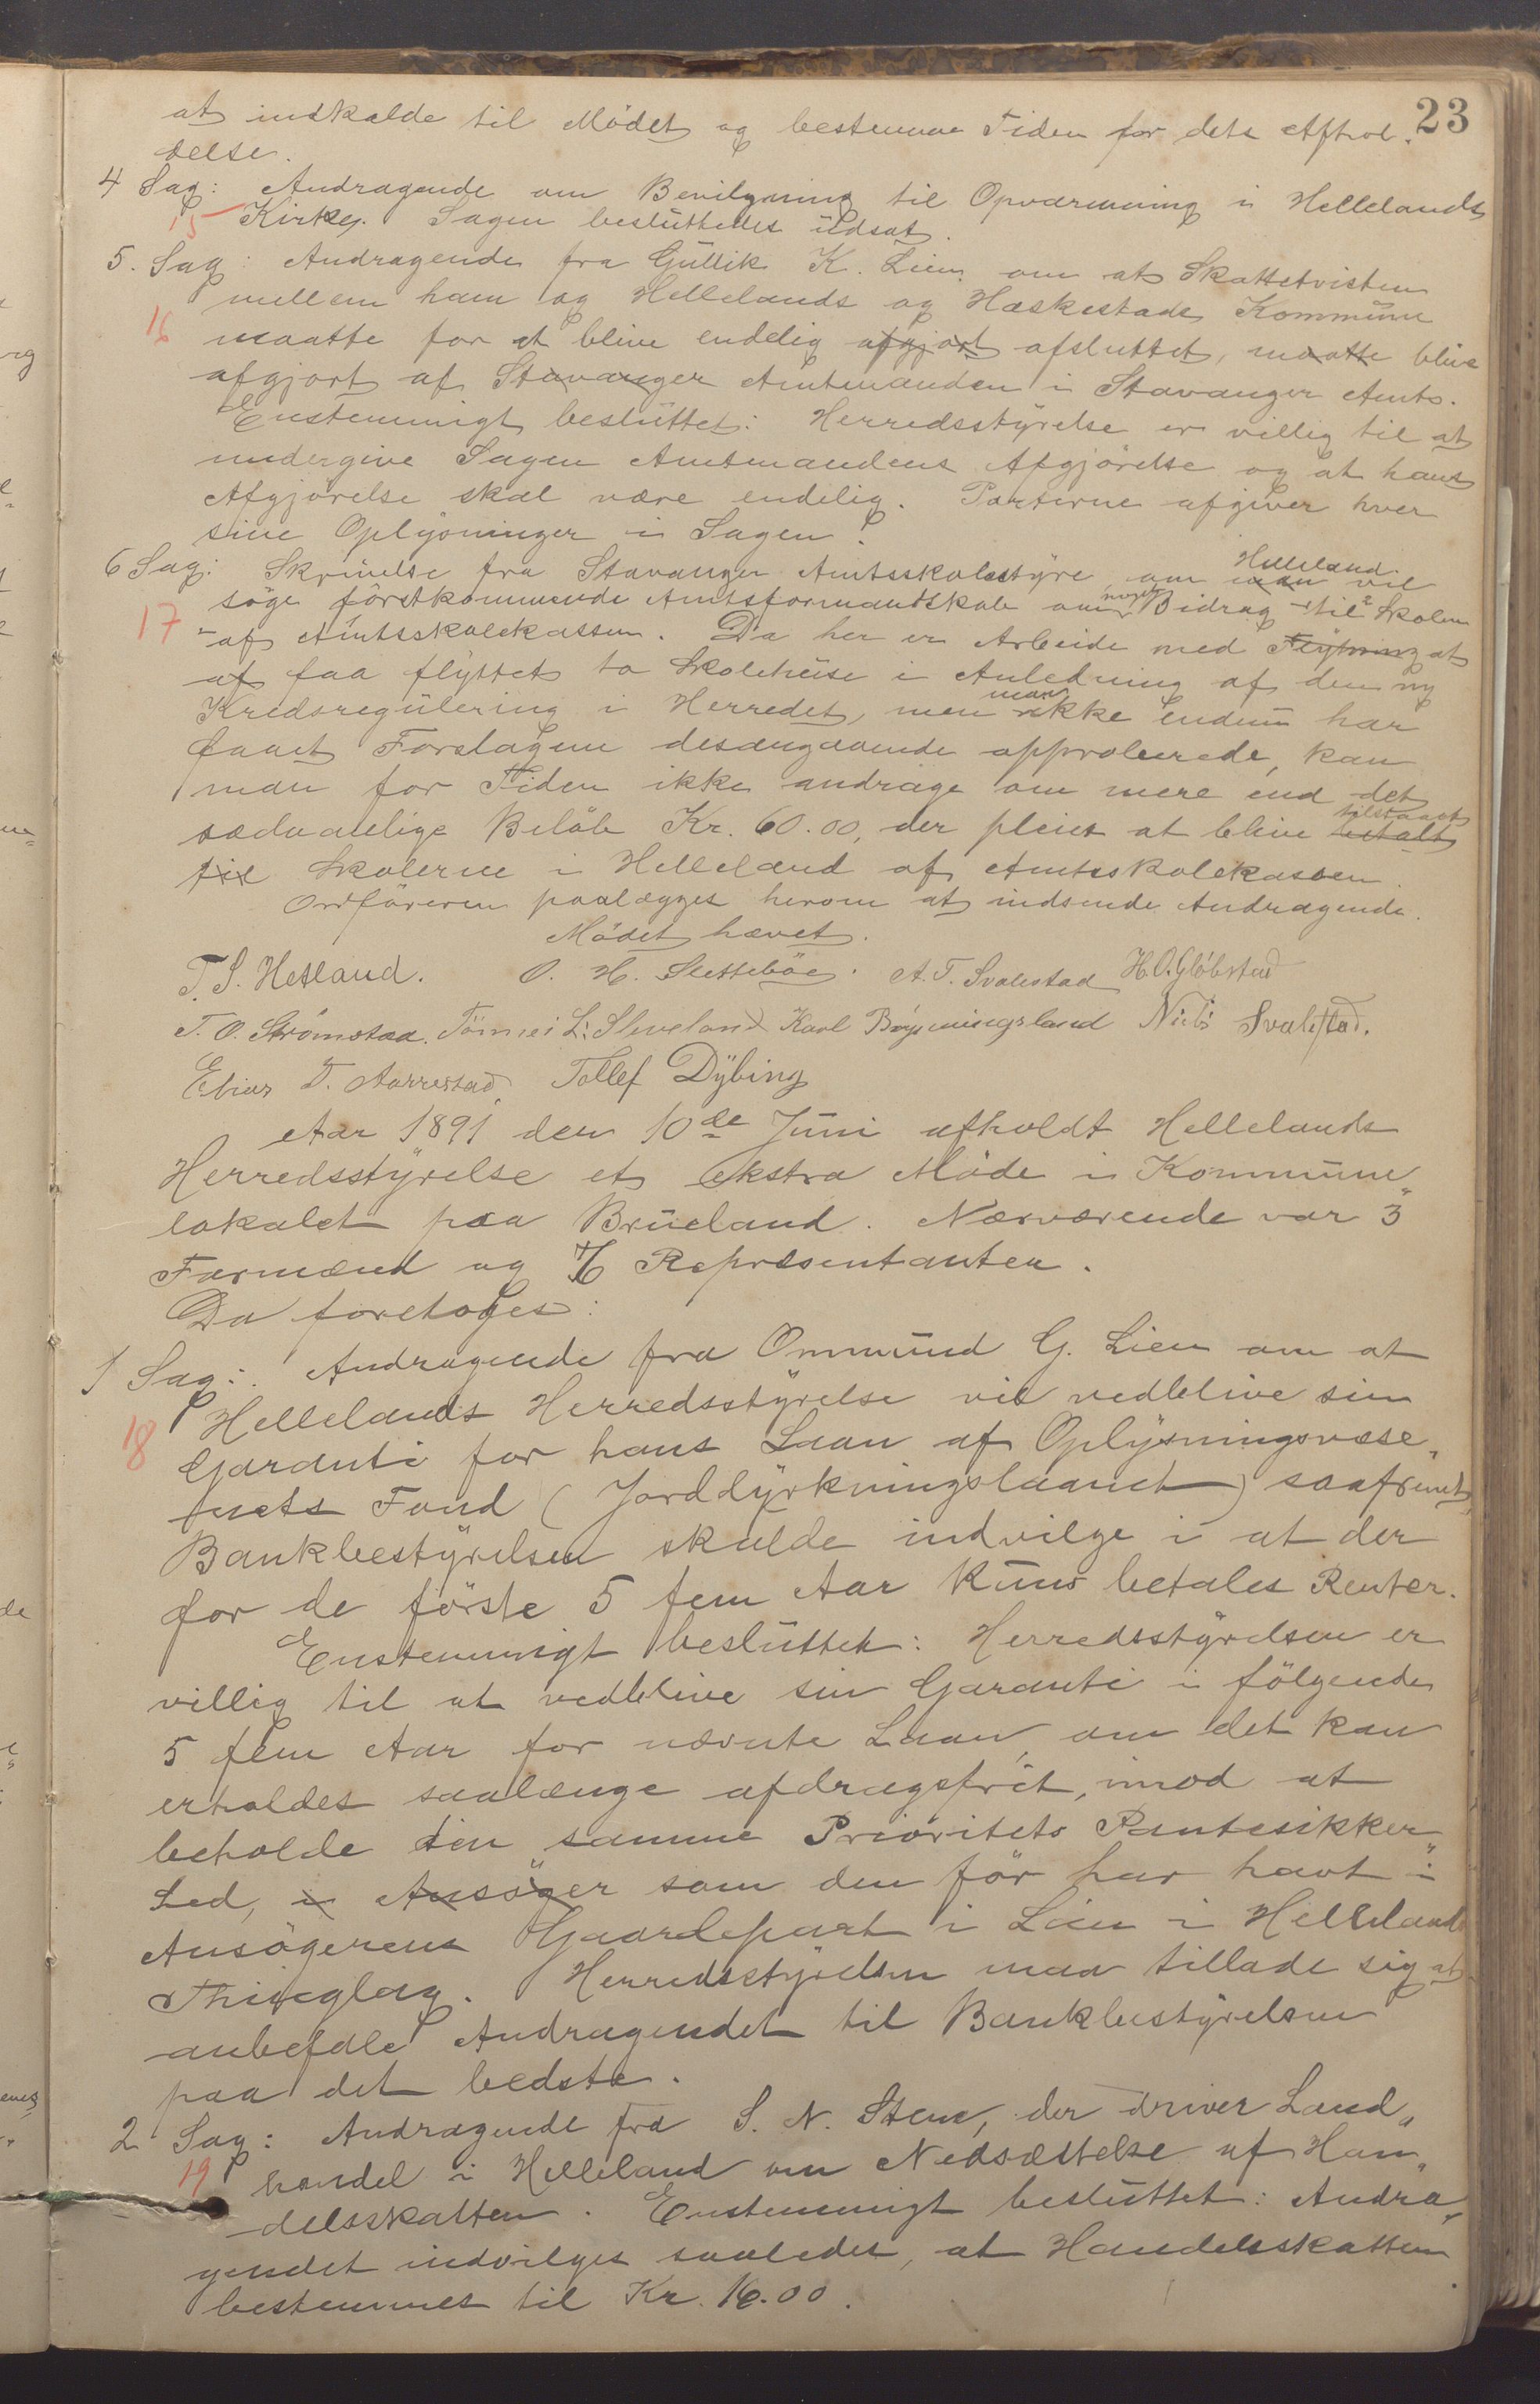 23
at indkalde til Mödet og bestemme Tiden for dets Afhol-
delse.
4 Sag: Andragende om Bevilgning til Opvarmning i Hellelands
15 Kirke. Sagen besluttedes udsat.
5. Sag: Andragende fra Gullik K. Lien om at Skattetvisten
mellem ham og Hellelands og Heskestads Kommune
16 maatte for at blive endelig afgjort afsluttet, maatte blive
afgjort af Stavanger Amtmanden i Stavanger Amts.
Enstemmigt besluttet: Herredsstyrelse er villig til at
undergive Sagen Amtmandens Afgjörelse og at hans
Afgjörelse skal være endelig. Parterne afgiver hver
sine Oplysninger i Sagen.
6 Sag: Skrivelse fra Stavanger Amtsskolestyre, om man Helleland vil
17 söge förstkommende Amtsformandskab om noget Bidrag til Skolen
af Amtsskolekassen. Da her er Arbeide med Flytning at
af faa flyttet to Skolehuse i Anledning af den ny
Kredsregulering i Herredet, men man ikke endnu har
faaet Forslagene desangaaende approberede, kan
man for Tiden ikke andrage om mere end det
sedvanlige Belöb Kr. 60.00, der pleier at blive betalt tilstaaet
til Skolerne i Helleland af Amtsskolekassen.
Ordföreren paalægges herom at indsende Andragende.
Mödet hævet.
T. S. Hetland. O. H. Sletteböe. A. T. Svalestad H. O. Glöbstad
T. O. Strömstad. Tönnes L. Sleveland Karl Bøgmingsland Niels Svalestad.
Elias T. Aarrestad, Tollef Dybing
Aar 1891 den 10de Juni afholdt Hellelands
Herredsstyrelse et ekstra Möde i Kommune„
lokalet paa Brueland. Nærværende var 3
Formænd og 6 Repræsentanter.
Da foretoges:
1 Sag: Andragende fra Ommund G. Lien om at
Hellelands Herredsstyrelse vil vedblive sin
18 Garanti for hans Laan af Oplysningsvæse„
nets Fond (Jorddyrkningslaanet) saafremt
Bankbestyrelsen skulde indvilge i at der
for de förste 5 fem Aar kuns betales Renter.
Enstemmigt besluttet: Herredsstyrelsen er
villig til at vedblive sin Garanti i fölgende
5 fem Aar for nævnte Laan, om det kan
erholdes saalænge afdragsfrit, imod at
beholde den samme Prioritets Pantesikker„
hed, i Ansöger som den för har havt i
Ansögerens Gaardepart i Lien i Hellelands
Thinglag. Herredsstyrelsen maa tillade sig at
anbefale Andragendet til Bankbestyrelsen
paa det bedste.
2 Sag: Andragende fra S. N. Stene, der driver Land„
19 handel i Helleland om Nedsættelse af Han„
delsskatten. Enstemmigt besluttet: Andra„
gendet indvilges saaledes, at Handelsskatten
bestemmes til Kr. 16.00.